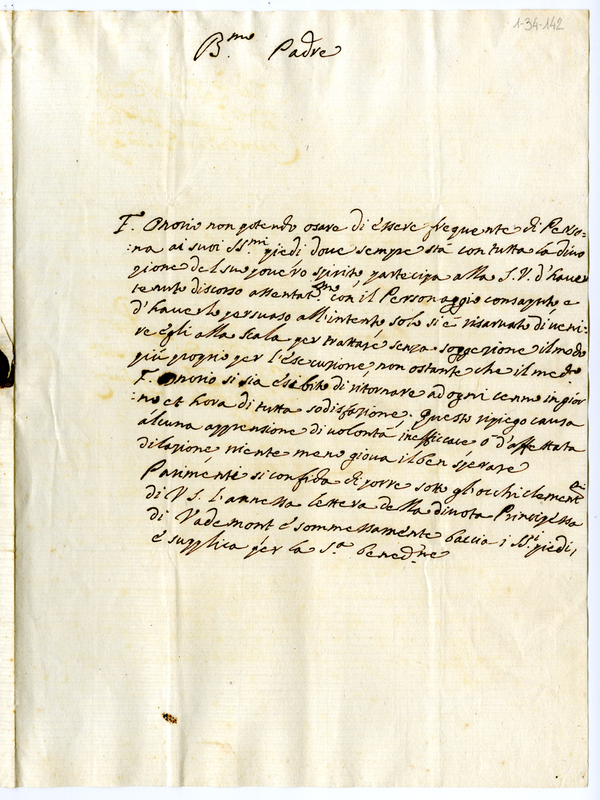 1-34-142
B.mo Padre
F. Onorio non potendo osare di essere frequente di Perso-
:na ai suoi SS.mi piedi doue sempre stà con tutta la diuo
zione del suo pouero spirito, partecipa alla S.V. d'hauer
tenuto discorso con il Personaggio consaputo e
d'hauerlo persuaso all'intento solo si è risaruato di veni-
re egli alla scala per trattare senza soggezione il modo
più proprio per l'esecuzione, non ostante che il med.o
F. Onorio si sia esebito di ritornare ad ogni cenno in gior
:no et hora di tutta sodisfazione. Questo ripiego causa
alcuna apprensione di volontà inefficace o d'affettata
dilazione niente meno gioua il ben sperare
Parimente si confida di porre sotto gl'occhi clementi
di V S. l'annessa lettera della diuota Principessa
di Vademont e sommessamente baccia i SS.i piedi,
e supplica per la S.a bened.ne